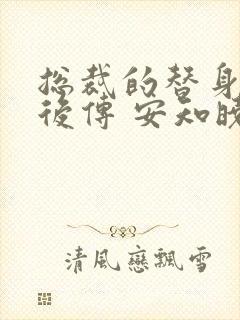 总裁的替身
後傳 安知曉
清風戀飄雪